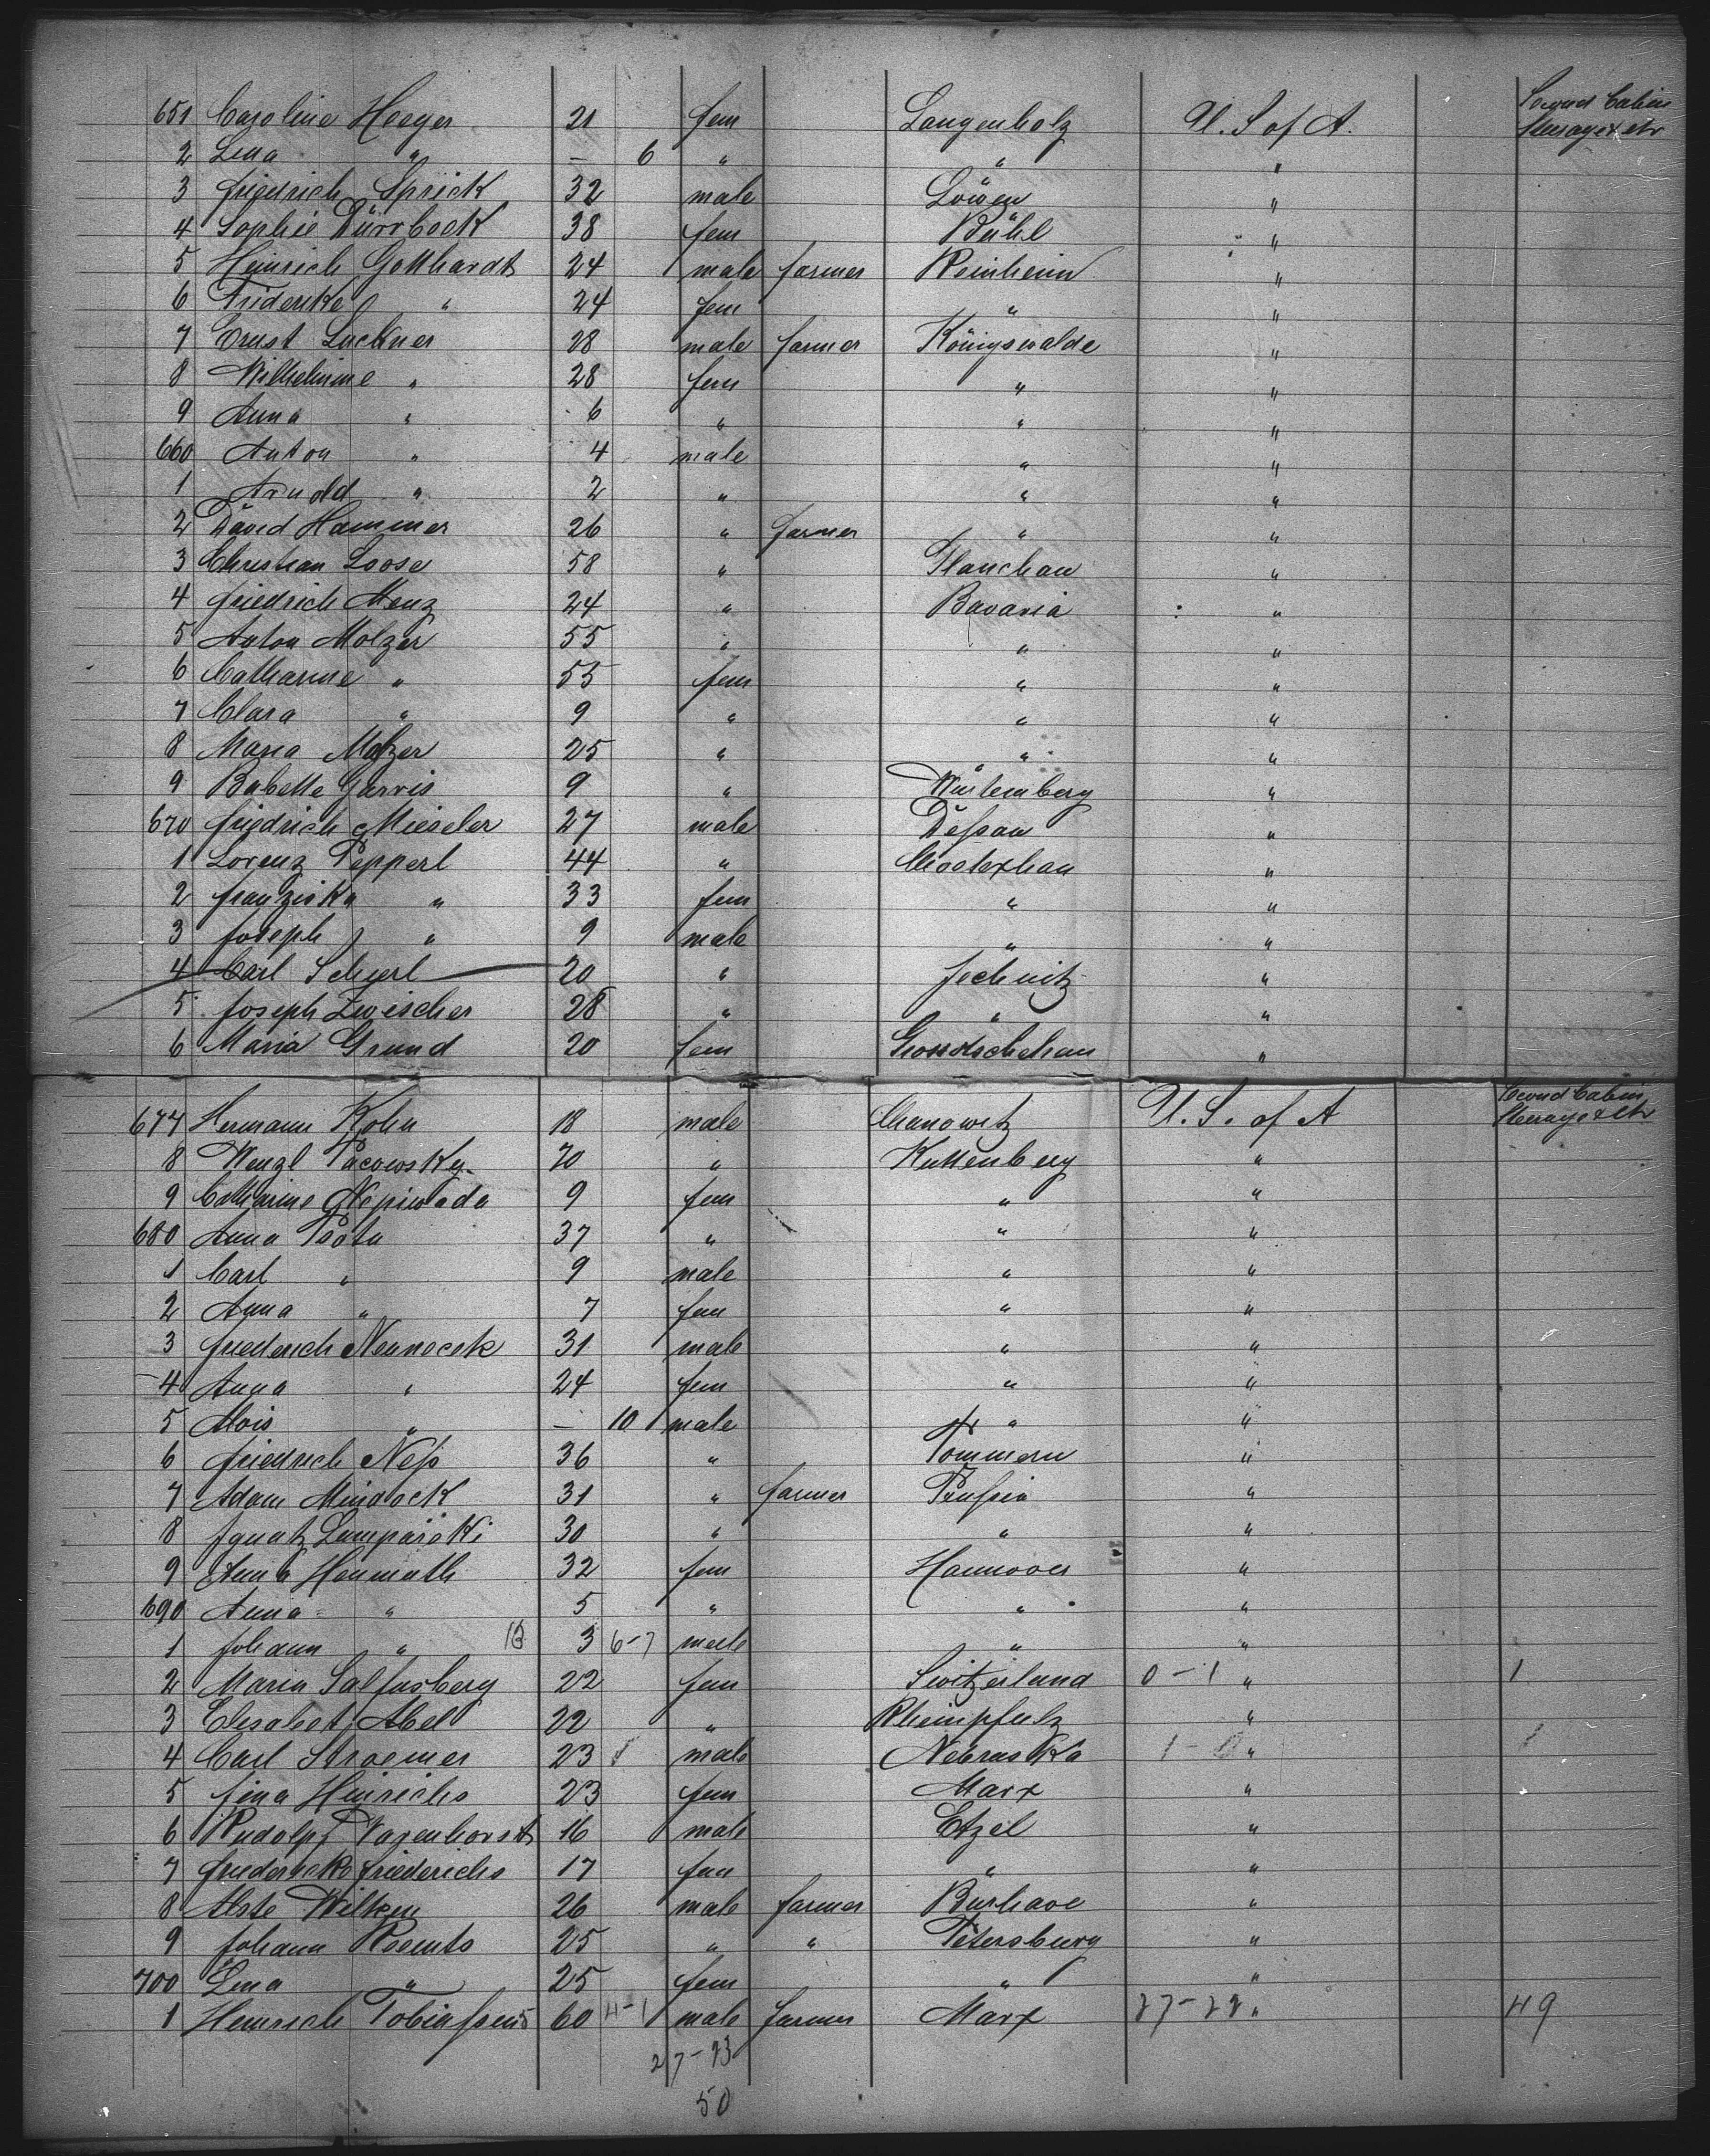 Second Cabin
651 Caroline Heeger 21 fem Langenholz U. S of A. Steerage etc
2 Lena " — 6 " " "
3 Friedrich Sprick 32 male Löwen "
4 Sophie Dürrbeck 38 fem Bühl "
5 Heinrich Gotthardt 24 male farmer Reinheim "
6 Friderike " 24 fem " "
7 Ernst Luckner 28 male farmer Königswalde "
8 Wilhelmine " 28 fem " "
9 Anna " 6 " " "
660 Anton " 4 male " "
1 Arnold " 2 " " "
2 David Hammer 26 " farmer " "
3 Christian Loose 58 " Glanchau "
4 Friedrich Menz 24 " Bavaria "
5 Anton Molzer 55 " " "
6 Catharine " 55 fem " "
7 Clara " 9 " " "
8 Maria Molzer 25 " " "
9 Babette Garris 9 " Würtemberg "
670 Friedrich Mieseler 27 male Deßau "
1 Lorenz Pepperl 44 " "
2 Franziska " 33 fem " "
3 Joseph " 9 male " "
4 Carl Scherl 20 " Jechnitz "
5 Joseph Zwescher 28 " " "
6 Maria Grund 20 fem "
Second Cabin
677 Hermann Kohn 18 male Chanowitz U. S. of A Steerage etc
8 Wenzl Pacowsky 70 " Kuttenberg "
9 Catharine Nepiwoda 9 fem " "
680 Anna Psota 37 " " "
1 Carl " 9 male " "
2 Anna " 7 fem " "
3 Friederich Nemecek 31 male " "
4 Anna " 24 fem " "
5 Alois " — 10 male " "
6 Friedrich Neß 36 " Pommern "
7 Adam Mindock 31 " farmer Preußia "
8 Ignatz Lamparski 30 " " "
9 Anna Hanmuth 32 fem Hannover "
690 Anna " 5 " " "
1 Johann " 3 6-7 male " "
2 Maria Salfusberg 22 fem Switzerland 0-1 " 1
3 Elisabet Abel 22 " Rheinpfalz "
4 Carl Stroemer 23 1 male Nebraska 1-0 " 1
5 Fina Hinrichs 23 fem Marx "
6 Rudolph Vagenhorst 16 male Etzel "
7 Friedericke Friederichs 17 fem " "
8 Alste Wilken 26 male farmer Burhave "
9 Johann Roents 25 " " Petersburg "
700 Lena " 25 fem " "
1 Heinrich Tobiaßen 60 4-1 male farmer Marx 27-22 " 49
27-23
50